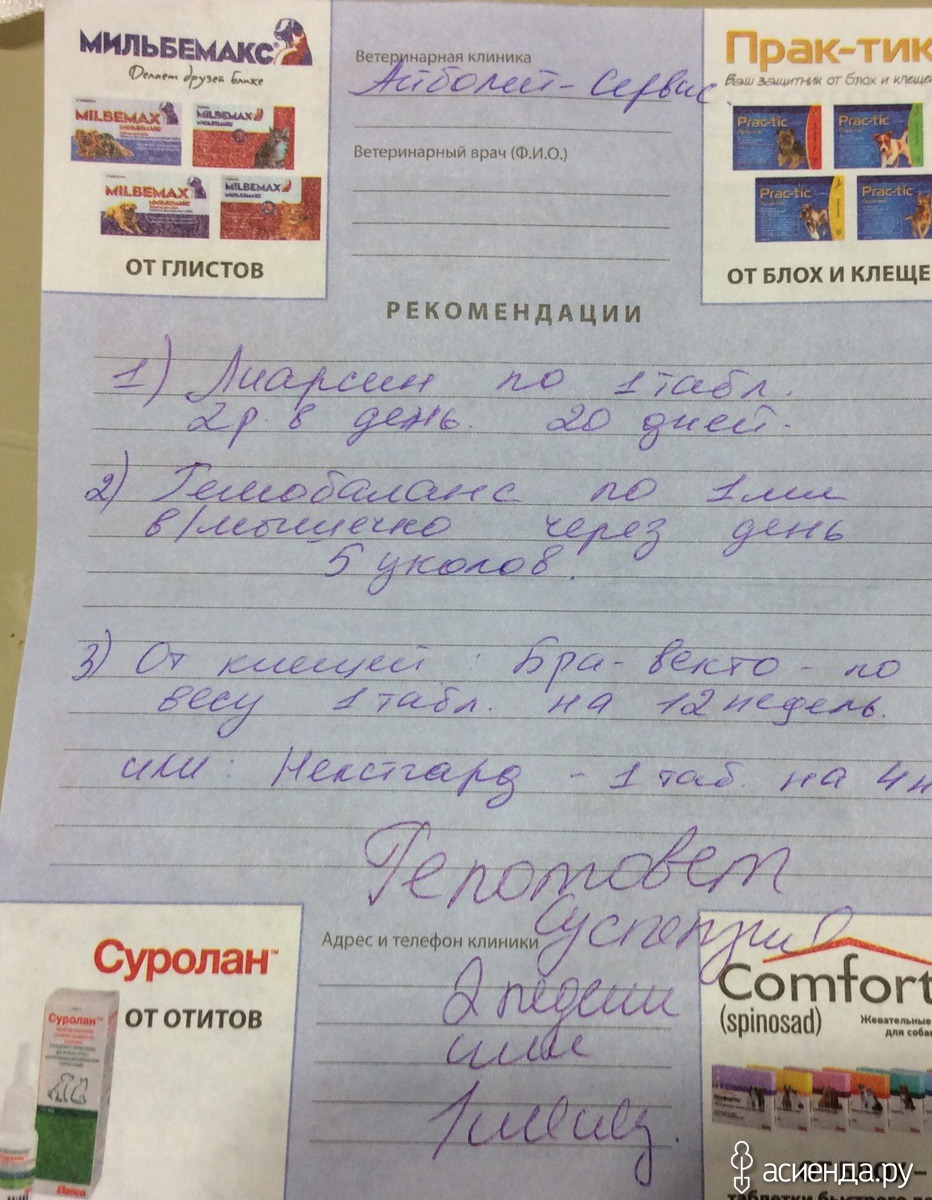 МИЛЬБЕМАКС
Делает друзей ближе
MILBEMAX
МИЛЬБЕМАКС
MILBEMAX
МИЛЬБЕМАКС
MILBEMAX
МИЛЬБЕМАКС
MILBEMAX
МИЛЬБЕМАКС
ОТ ГЛИСТОВ
Ветеринарная клиника
Айболит-Сервис
Ветеринарный врач (Ф.И.О.)
Прак-тик
Ваш защитник от блох и клеще
Prac-tic
Prac-tic
Prac-tic
Prac-tic
ОТ БЛОХ И КЛЕЩЕ
РЕКОМЕНДАЦИИ
1) Лиарсин по 1 табл.
2р. в день. 20 дней.
2) Гемобаланс по 1 мл
в/мышечно через день
5 уколов.
3) От клещей: Бра-векто - по
весу 1 табл. на 12 недель.
или: Нексгард - 1 таб. на 4 н
Гепатовет
суспензия
2 недели
или
1 месяц.
Суролан™
ОТ ОТИТОВ
Суролан™
Адрес и телефон клиники
Comfort
(spinosad)
Жевательные
для соба
асиенда.ру